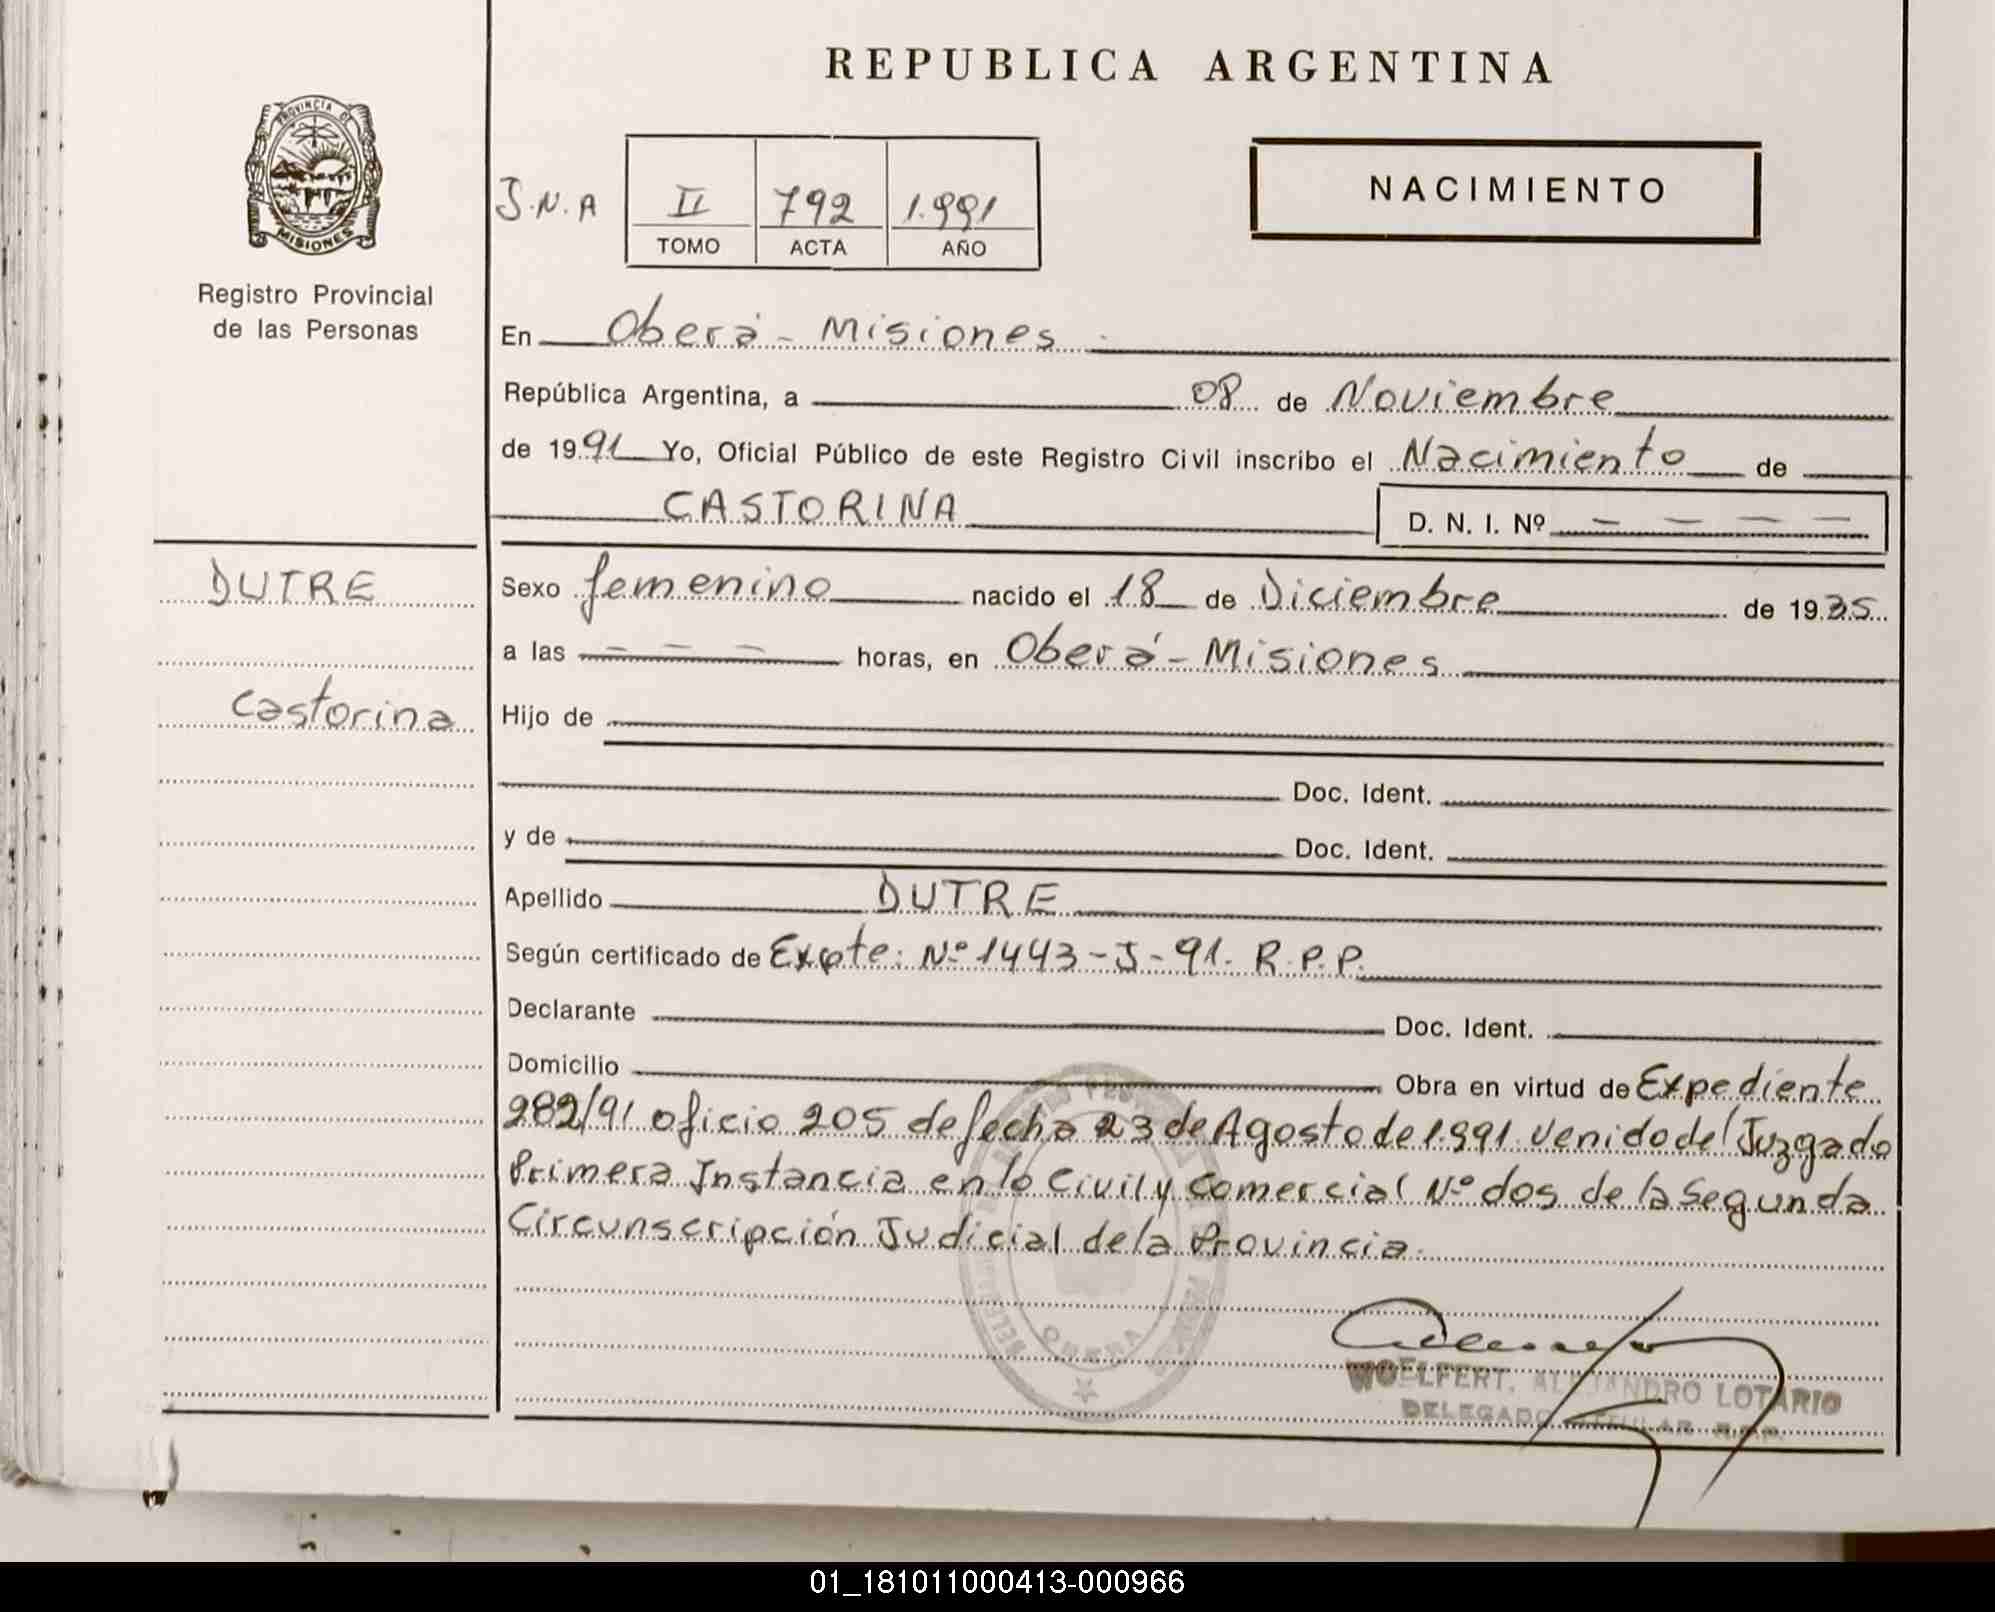 REPUBLICA ARGENTINA
PROVINCIA DE
MISIONES
Registro Provincial
de las Personas
J.N.A
II 792 1.991
TOMO ACTA AÑO
NACIMIENTO
En Oberá - Misiones
República Argentina, a 08 de Noviembre
de 1991 Yo, Oficial Público de este Registro Civil inscribo el Nacimiento de
CASTORINA D. N. I. Nº - - - -
DUTRE
Castorina
Sexo femenino nacido el 18 de Diciembre de 1935
a las - - - horas, en Oberá - Misiones
Hijo de
Doc. Ident.
y de Doc. Ident.
Apellido DUTRE
Según certificado de Expte: Nº 1443-J-91. R.P.P.
Declarante Doc. Ident.
Domicilio Obra en virtud de Expediente
282/91 oficio 205 de fecha 23 de Agosto de 1.991. Venido del Juzgado
Primera Instancia en lo Civil y Comercial Nº dos de la Segunda
Circunscripción Judicial de la Provincia.
OBERA
WOELFERT, ALEJANDRO LOTARIO
DELEGADO TITULAR R.P.P.
01_181011000413-000966